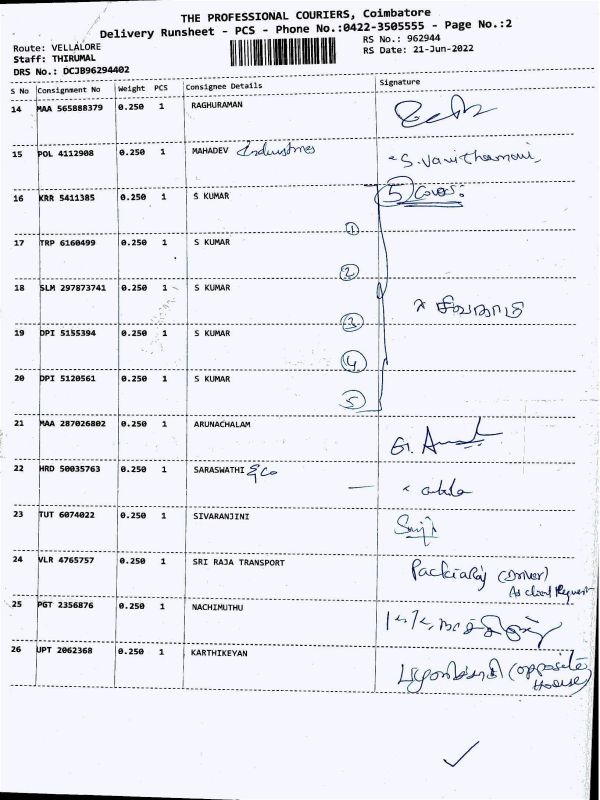 THE PROFESSIONAL COURIERS, Coimbatore
Delivery Runsheet - PCS - Phone No.:0422-3505555 - Page No.:2
Route: VELLALORE
RS No.: 962944
Staff: THIRUMAL
RS Date: 21-Jun-2022
DRS No.: DCJB96294402
S No Consignment No Weight PCS Consignee Details Signature
14 MAA 565888379 0.250 1 RAGHURAMAN
15 POL 4112908 0.250 1 MAHADEV Industries S. Vanithamani
16 KRR 5411385 0.250 1 S KUMAR 5 Covers:
1
17 TRP 6160499 0.250 1 S KUMAR
2
18 SLM 297873741 0.250 1 S KUMAR
3
19 DPI 5155394 0.250 1 S KUMAR
4
20 DPI 5120561 0.250 1 S KUMAR
5
21 MAA 287026802 0.250 1 ARUNACHALAM
22 HRD 50035763 0.250 1 SARASWATHI & Co
23 TUT 6074022 0.250 1 SIVARANJINI
24 VLR 4765757 0.250 1 SRI RAJA TRANSPORT Packiaraj (Driver)
As client Request
25 PGT 2356876 0.250 1 NACHIMUTHU
26 UPT 2062368 0.250 1 KARTHIKEYAN (opposite
House)